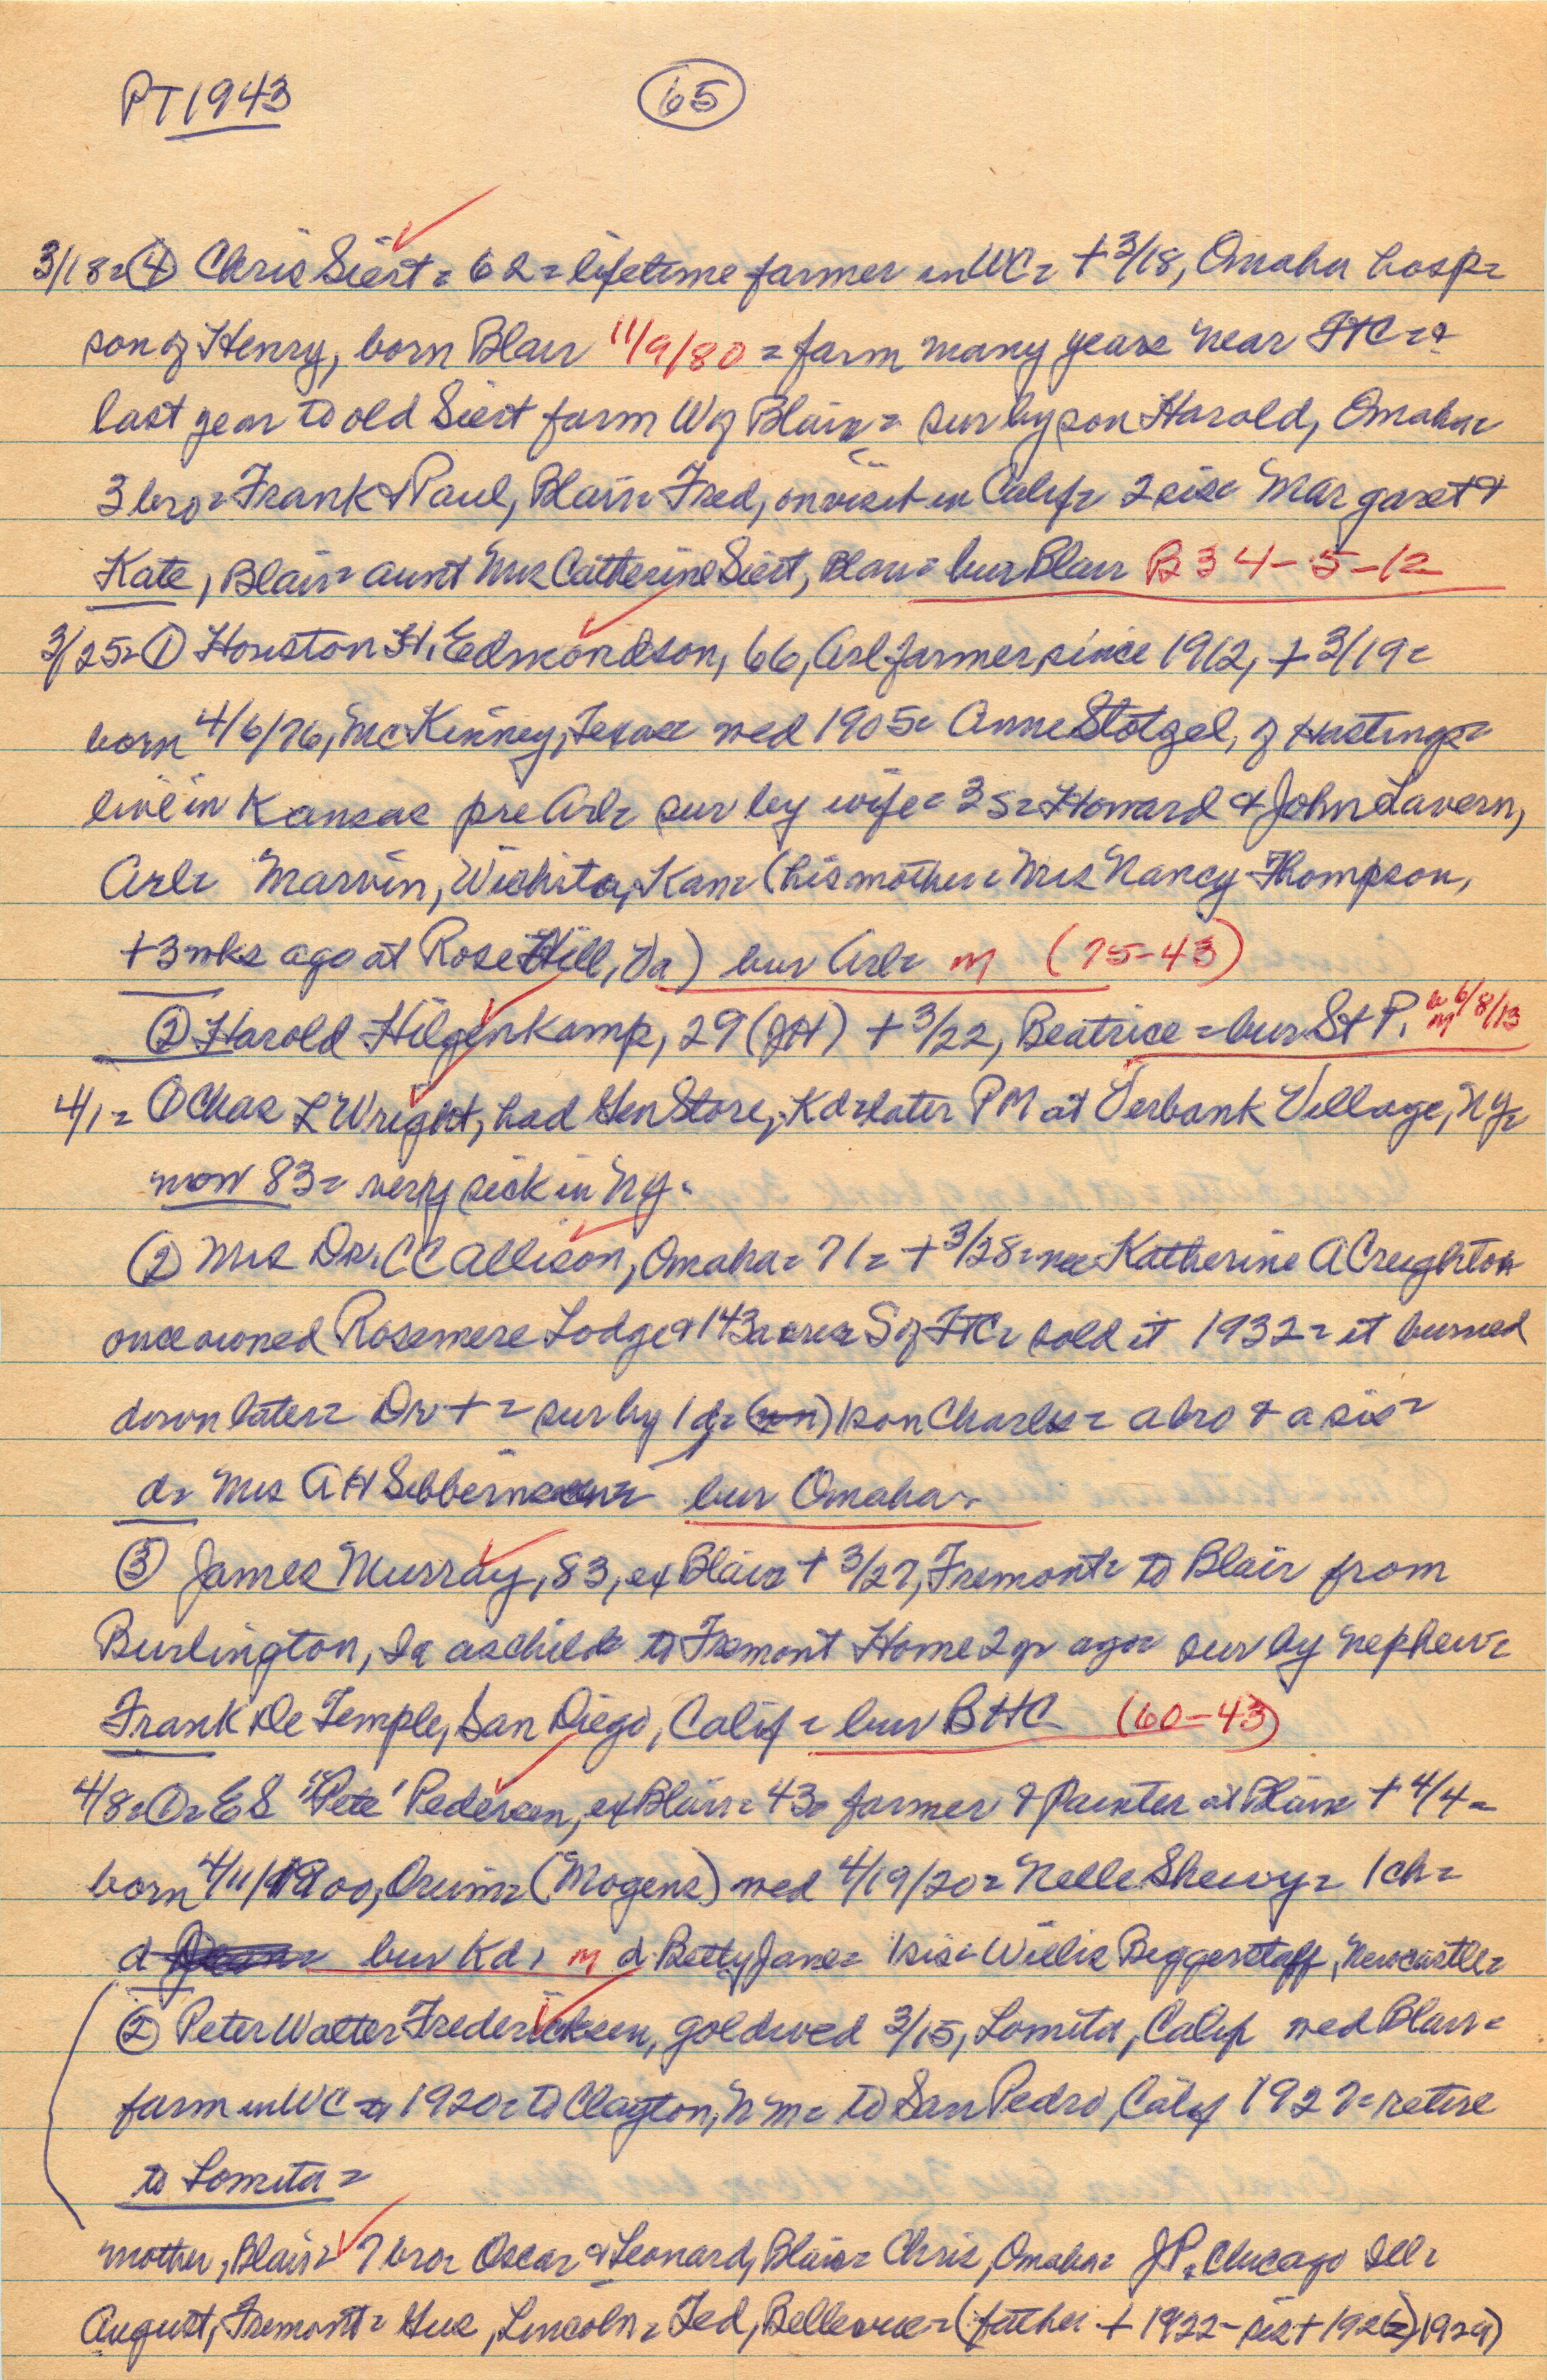 PT 1943 65
3/18= 4 Chris Siert= 62= lifetime farmer in WC= +3/18, Omaha hosp=
son of Henry, born Blair 11/9/80 = farm many years near FTC= &
last year to old Siert farm W of Blair= sur by son Harold, Omaha=
3 bro= Frank & Paul, Blair= Fred, on visit in Calif= 2 sis= Margaret &
Kate, Blair= aunt Mrs Catherine Siert, Blair= bur Blair B 3 4-5-12
3/25= 1 Houston H. Edmondson, 66, Arl farmer, since 1912, + 3/19=
born 4/6/76, McKinney, Texas= wed 1905= Anne Stotzel, of Hastings=
live in Kansas pre Arl= sur by wife= 3 s= Howard & John Lavern,
Arl= Marvin, Wichita, Kan= (his mother= Mrs Nancy Thompson,
+3 wks ago at Rose Hill, Va) bur Arl= m (75-43)
2 Harold Hilgenkamp, 29 (JH) + 3/22, Beatrice = bur St P. b 6/8/13 m
4/1= 1 Chas L Wright, had Gen Store, Kd= later PM at Verbank Village, NY=
now 83= very sick in NY.
2 Mrs Dr. CC Allison, Omaha= 71= + 3/28= nee Katherine A Creighton
once owned Rosemere Lodge & 143 acres S of FTC= sold it 1932= it burned
down later= Dr + = sur by 1 d= (un) 1 son Charles= a bro & a sis=
d= Mrs AH Sibbernsen= bur Omaha=
3 James Murray, 83, ex Blair= + 3/27, Fremont= to Blair from
Burlington, Ia as child= to Fremont Home 2 yr ago= sur by nephew=
Frank De Temple, San Diego, Calif = bur BHC (60-43)
4/8= 1= ES "Pete" Pedersen, ex Blair= 43= farmer & painter at Blair= + 4/4=
born 4/11/1900, Orum= (Mogens) wed 4/19/20= Nelle Shewy= 1 ch=
d bur Kd, m d Betty Jane= 1 sis= Willis Biggerstaff, Newcastle=
2 Peter Walter Fredericksen, gold wed 3/15, Lomita, Calif wed Blair=
farm in WC to 1920= to Clayton, N M= to San Pedro, Calif 1927= retire
to Lomita=
mother, Blair= 7 bro= Oscar & Leonard, Blair= Chris, Omaha= JP, Chicago Ill=
August, Fremont= Gus, Lincoln= Ted, Bellevue= (father + 1922- sis +